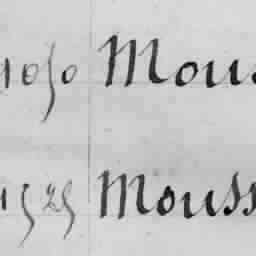 1050 Mous
1525 Mouss